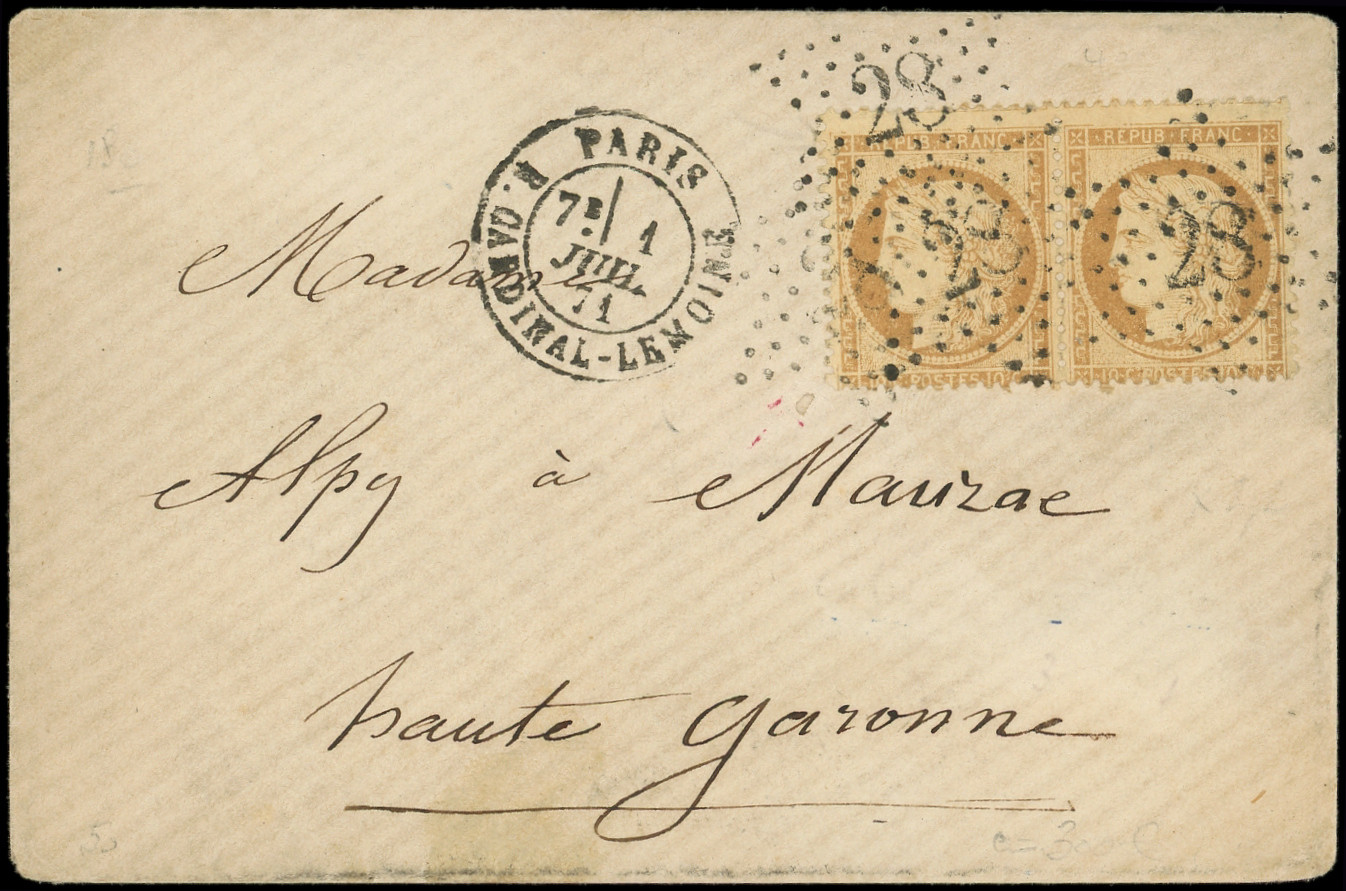 28
PARIS
R. CARDINAL-LEMOINE
7E 1
JUIL.
71
REPUB. FRANC.
REPUB. FRANC.
28
28
10 C. POSTES 10 C.
10 C. POSTES 10 C.
Madame
Alpy à Mauzac
haute garonne